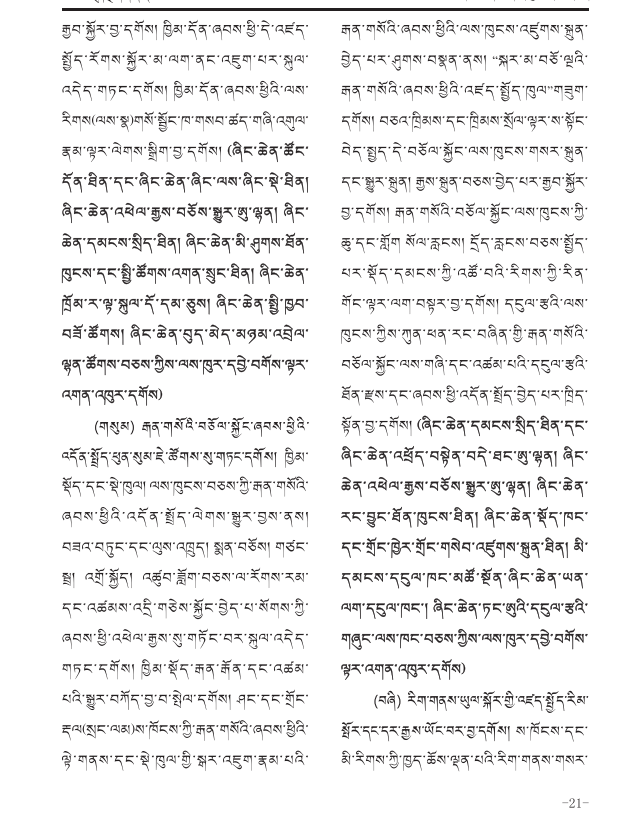 རྒྱབ་སྐྱོར་བྱ་དགོས། ཁྱིམ་དོན་ཞབས་ཕྱི་དེ་འཛད་
སྤྱོད་རོགས་སྐྱོར་མ་ལག་ནང་འཇུག་པར་སྐུལ་
འདེད་གཏང་དགོས། ཁྱིམ་དོན་ཞབས་ཕྱིའི་ལས་
རིགས(ལས་སྣ)གསོ་སྦྱོང་ཁ་གསབ་ཚད་གཞི་འགུལ་
རྣམ་ལྟར་ལེགས་སྒྲིག་བྱ་དགོས། (ཞིང་ཆེན་ཚོང་
དོན་ཐིན་དང་ཞིང་ཆེན་ཞིང་ལས་ཞིང་སྡེ་ཐིན།
ཞིང་ཆེན་འཕེལ་རྒྱས་བཅོས་སྒྱུར་ཨུ་ལྷན། ཞིང་
ཆེན་དམངས་སྲིད་ཐིན། ཞིང་ཆེན་མི་ཤུགས་ཐོན་
ཁུངས་དང་སྤྱི་ཚོགས་འགན་སྲུང་ཐིན། ཞིང་ཆེན་
ཁྲོམ་ར་ལྟ་སྐུལ་དོ་དམ་ཅུས། ཞིང་ཆེན་སྤྱི་ཁྱབ་
བཟོ་ཚོགས། ཞིང་ཆེན་བུད་མེད་མཉམ་འབྲེལ་
ལྷན་ཚོགས་བཅས་ཀྱིས་ལས་ཁུར་དབྱེ་བགོས་ལྟར་
འགན་འཁུར་དགོས)
(གསུམ) རྒན་གསོའི་བཅོལ་སྐྱོང་ཞབས་ཕྱིའི་
འདོན་སྤྲོད་ཕུན་སུམ་ཇེ་ཚོགས་སུ་གཏང་དགོས། ཁྱིམ་
སྡོད་དང་སྡེ་ཁུལ། ལས་ཁུངས་བཅས་ཀྱི་རྒན་གསོའི་
ཞབས་ཕྱིའི་འདོན་སྤྲོད་ལེགས་སྒྱུར་བྱས་ནས།
བཟའ་བཏུང་དང་ལུས་འཁྲུད། སྨན་བཅོས། གཙང་
སྦྲ། འགྲོ་སྐྱོད། འཚུབ་སློག་བཅས་ལ་རོགས་རམ་
དང་འཚམས་འདྲི་གཅེས་སྐྱོང་བྱེད་པ་སོགས་ཀྱི་
ཞབས་ཕྱི་འཕེལ་རྒྱས་སུ་གཏོང་བར་སྐུལ་འདེད་
གཏང་དགོས། ཁྱིམ་སྡོད་རྒན་རྒོན་དང་འཚམ་
པའི་སྒྱུར་བཀོད་བྱ་བ་སྤེལ་དགོས། ཤང་དང་གྲོང་
རྡལ(སྲང་ལམ)ས་ཁོངས་ཀྱི་རྒན་གསོའི་ཞབས་ཕྱིའི་
ལྟེ་གནས་དང་སྡེ་ཁུལ་གྱི་སྒར་འཇུག་རྣམ་པའི་
རྒན་གསོའི་ཞབས་ཕྱིའི་ལས་ཁུངས་འཛུགས་སྐྲུན་
བྱེད་པར་ཤུགས་བསྣན་ནས། “སྐར་མ་བཅོ་ལྔའི་
རྒན་གསོའི་ཞབས་ཕྱིའི་འཛད་སྤྱོད་ཁུལ”གཟུག་
དགོས། བཅའ་ཁྲིམས་དང་ཁྲིམས་སྲོལ་ལྟར་ས་སྟོང་
བེད་སྤྱད་དེ་བཅོལ་སྐྱོང་ལས་ཁུངས་གསར་སྐྲུན་
དང་སྒྱུར་སྐྲུན། རྒྱས་སྐྲུན་བཅས་བྱེད་པར་རྒྱབ་སྐྱོར་
བྱ་དགོས། རྒན་གསོའི་བཅོལ་སྐྱོང་ལས་ཁུངས་ཀྱི་
ཆུ་དང་གློག སོལ་རླངས། དྲོད་རླངས་བཅས་སྤྱོད་
པར་སྡོད་དམངས་ཀྱི་འཚོ་བའི་རིགས་ཀྱི་རིན་
གོང་ལྟར་ལག་བསྟར་བྱ་དགོས། དངུལ་རྩའི་ལས་
ཁུངས་ཀྱིས་ཀུན་ཕན་རང་བཞིན་གྱི་རྒན་གསོའི་
བཅོལ་སྐྱོང་ལས་གཞི་དང་འཚམ་པའི་དངུལ་རྩའི་
ཐོན་རྫས་དང་ཞབས་ཕྱི་འདོན་སྤྲོད་བྱེད་པར་ཁྲིད་
སྟོན་བྱ་དགོས། (ཞིང་ཆེན་དམངས་སྲིད་ཐིན་དང་
ཞིང་ཆེན་འཕྲོད་བསྟེན་བདེ་ཐང་ཨུ་ལྷན། ཞིང་
ཆེན་འཕེལ་རྒྱས་བཅོས་སྒྱུར་ཨུ་ལྷན། ཞིང་ཆེན་
རང་བྱུང་ཐོན་ཁུངས་ཐིན། ཞིང་ཆེན་སྡོད་ཁང་
དང་གྲོང་ཁྱེར་གྲོང་གསེབ་འཛུགས་སྐྲུན་ཐིན། མི་
དམངས་དངུལ་ཁང་མཚོ་སྔོན་ཞིང་ཆེན་ཡན་
ལག་དངུལ་ཁང་། ཞིང་ཆེན་ཏང་ཨུའི་དངུལ་རྩའི་
གཞུང་ལས་ཁང་བཅས་ཀྱིས་ལས་ཁུར་དབྱེ་བགོས་
ལྟར་འགན་འཁུར་དགོས)
(བཞི) རིག་གནས་ཡུལ་སྐོར་གྱི་འཛད་སྤྱོད་རིམ་
སྤོར་དང་དར་རྒྱས་ཡོང་བར་བྱ་དགོས། ས་ཁོངས་དང་
མི་རིགས་ཀྱི་ཁྱད་ཆོས་ལྡན་པའི་རིག་གནས་གསར་
-21-